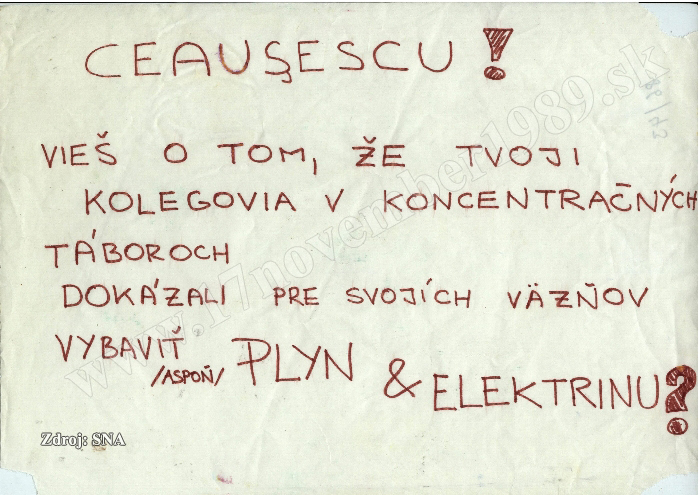 CEAUŞESCU!
VIEŠ O TOM, ŽE TVOJI
KOLEGOVIA V KONCENTRAČNÝCH
TÁBOROCH
DOKÁZALI PRE SVOJÍCH VÄZŇOV
VYBAVIŤ /ASPOŇ/ PLYN & ELEKTRINU?
www.17november1989.sk
Zdroj: SNA